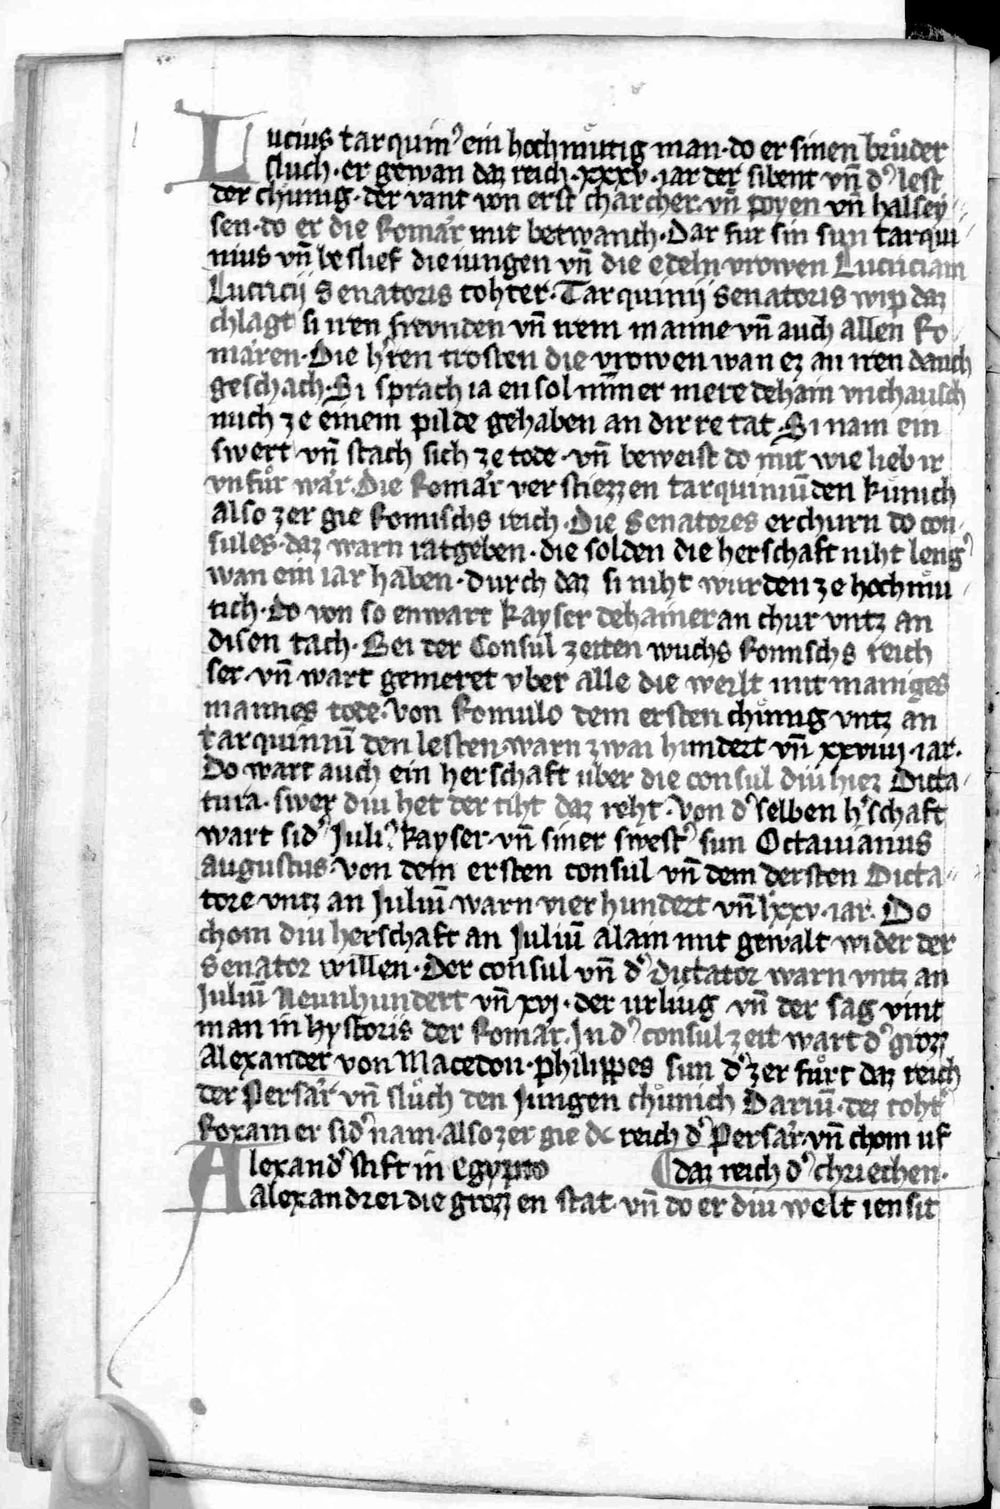 Lucius tarquini᾽ ein hochmuͤtig man · do er sinen bruͦder
sluch · er gewan daz reich · xxxv · iar der sibent vn̄ d᾽ lest
der chunig · der vant von erst charcher · vn̄ poyen vn̄ halsey
sen · do er die Romaͤr mit betwanch · Dar fur sin sun tarqui
nius vn̄ beslief die iungen vn̄ die edeln vrowen Lucrciam
Lucricij Senatoris tohter · Tarquinij Senatoris wip daz
chlagt si iren frevnden vn̄ irem manne vn̄ auch allen Ro
maͤren · Die h᾽ren trosten die vrowen wan ez an iren danch
geschach · Si sprach ia en sol nim̄er mere dehain vnchausch
mich ze einem pilde gehaben an dirre tat · Si nam ein
swert vn̄ stach sich ze tode · vn̄ beweist do mit wie lieb ir
vnfuͦr waͤr · Die Romaͤr verstiezzen tarquiniū den kunich
also zergie Romischs reich · Die Senatores erchurn do con
sules · daz warn ratgeben · die solden die herschaft niht leng᾽
wan ein iar haben · durch daz si niht wurden ze hochmuͤ
tich · do von so enwart kayser dehainer an chur vntz an
disen tach · Bei der Consul zeiten wuchs Romischs reich
ser · vn̄ wart gemeret vber alle die werlt mit maniges
mannes tode · von Romulo dem ersten chuͤnig vntz an
tarquiniū den lesten warn zwai hundert vn̄ xxviiij · iar ·
Do wart auch ein herschaft uber die consul diu hiez Dicta
tura · swer diu het der riht daz reht · von d᾽ selben h᾽schaft
wart sid᾽ Juli᾽ kayser · vn̄ siner swest᾽ sun Octauianus
augustus · von dem ersten consul vn̄ dem dersten Dicta
tore vntz an Juliū warn vierhundert vn̄ lxxv · iar · Do
chom diu herschaft an Juliū alain mit gewalt wider der
Senator willen · Der consul vn̄ d᾽ Dictator warn vntz an
Juliū Neunhundert vn̄ xvj · der urliug vn̄ der sag vint
man in hystoris der Romaͤr · In d᾽ consul zeit wart d᾽ grozz
Alexander von Macedon · philippes sun d᾽ zerfuͦrt daz reich
der Persaͤr vn̄ sluͦch den Jungen chuͤnich Dariū · dez toht᾽
Roxam er sid᾽ nam · also zergie dc reich d᾽ Persaͤr · vn̄ chom uf
Alexand᾽ stift in egypto
daz reich d᾽ chriechen ·
alexandrei die grozzen stat · vn̄ do er diu welt iensit